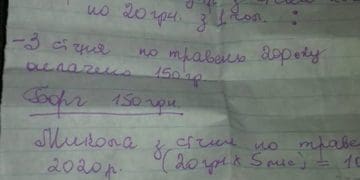 по 20 грн. з 1 чол. :
- З січня по травень 20 року
оплачено 150 гр
Борг 150 грн.
Микола з січня по траве
2020 р. (20 грн x 5 міс) = 10